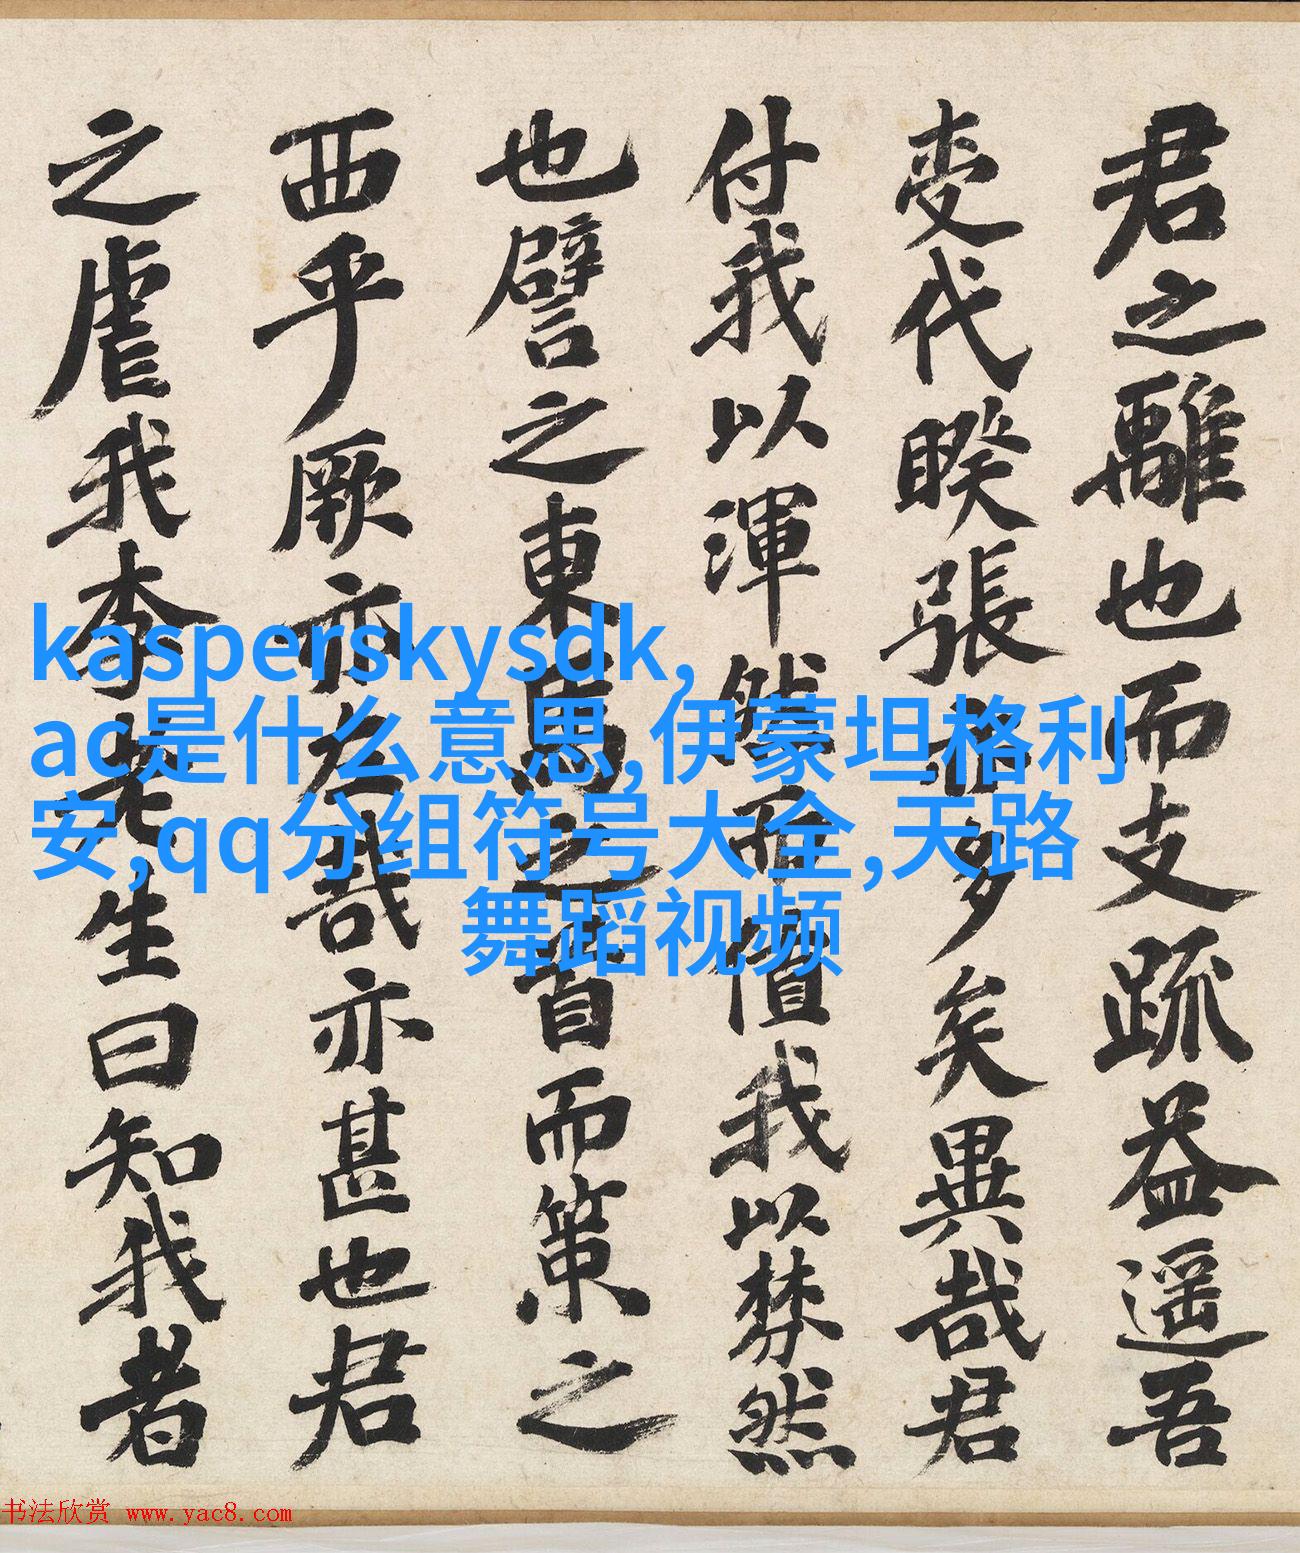 君之離也而支疏益遥吾
受代暌張 多矣異哉君
付我以渾然而償我以棼然
也譬之東馬之首而策之
西乎厥亦左哉亦甚也君
之虐我李老生曰知我者
kasperskysdk,
ac是什么意思,伊蒙坦格利
安,qq分组符号大全,天路
舞蹈视频
书法欣赏 www.yac8.com